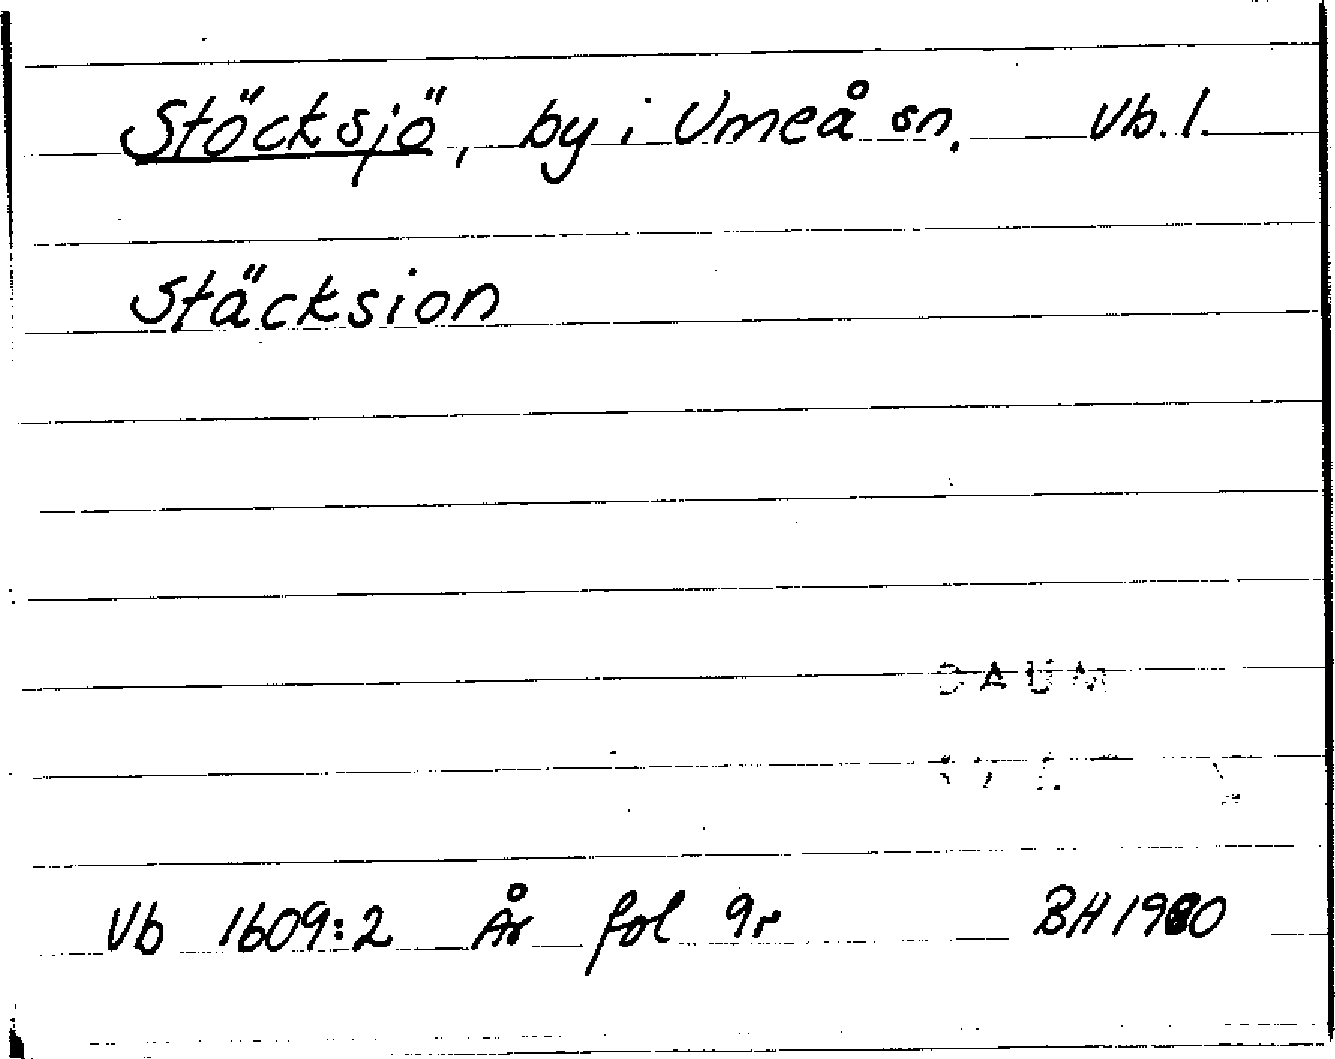 Stöcksjö, by i Umeå sn. Vb. l.
Stäcksion
DAUM
Vb 1609:2 År fol 9r BH 1980